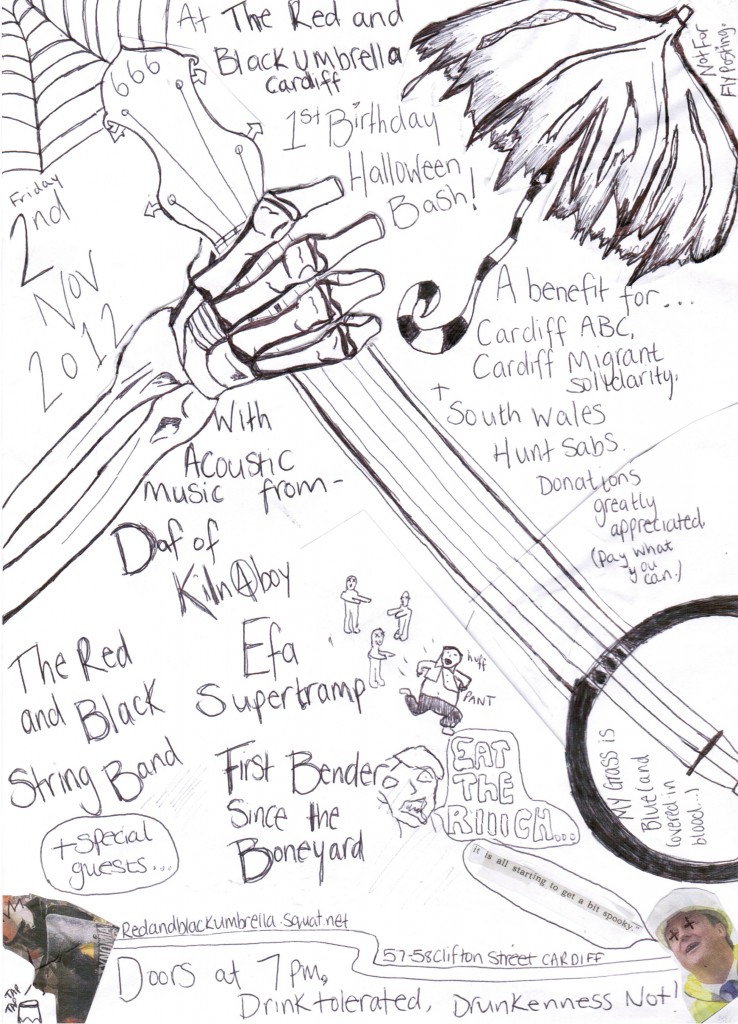 At The Red and
Black umbrella
Cardiff
1st Birthday
Halloween
Bash!
Not For
Fly Posting.
666
Friday
2nd
Nov
2012
A benefit for...
Cardiff ABC,
Cardiff Migrant
solidarity.
+
South Wales
Hunt Sabs.
Donations
greatly
appreciated
(pay what
you
can.)
With
Acoustic
music from-
Daf of
KilnAboy
The Red
and Black
String Band
Efa
Supertramp
huff
PANT
First Bender
Since the
Boneyard
EAT
THE
RIIICH...
My Grass is
Blue (and
covered in
blood...)
+ special
guests...
it is all starting to get a bit spooky.
Redandblackumbrella.squat.net
57-58 Clifton Street CARDIFF
Doors at 7pm,
Drink tolerated, Drunkenness Not!
TAP
TAP